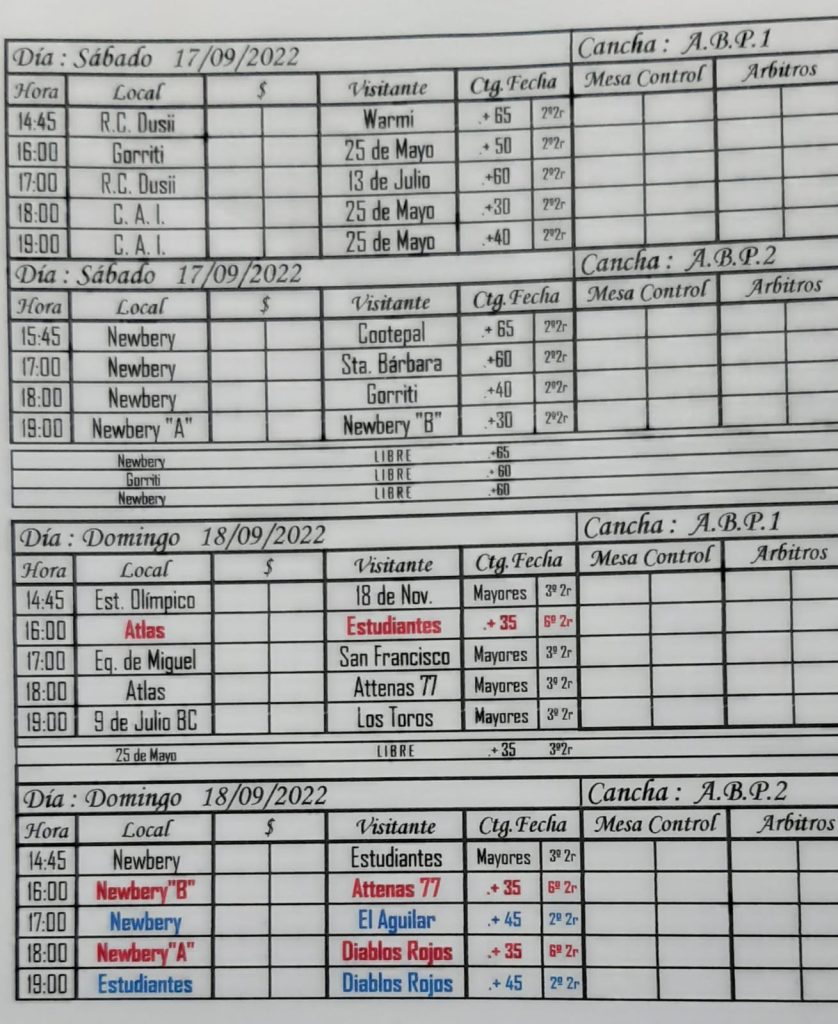 Día : Sábado 17/09/2022 Cancha : A.B.P.1
Hora Local $ Visitante Ctg.Fecha Mesa Control Arbitros
14:45 R.C. Dusii Warmi .+ 65 2º2r
16:00 Gorriti 25 de Mayo .+ 50 2º2r
17:00 R.C. Dusii 13 de Julio .+60 2º2r
18:00 C. A. I. 25 de Mayo .+30 2º2r
19:00 C. A. I. 25 de Mayo .+40 2º2r
Día : Sábado 17/09/2022 Cancha : A.B.P.2
Hora Local $ Visitante Ctg.Fecha Mesa Control Arbitros
15:45 Newbery Cootepal .+ 65 2º2r
17:00 Newbery Sta. Bárbara .+60 2º2r
18:00 Newbery Gorriti .+40 2º2r
19:00 Newbery "A" Newbery "B" .+30 2º2r
Newbery LIBRE .+65
Gorriti LIBRE .+ 60
Newbery LIBRE .+60
Día : Domingo 18/09/2022 Cancha : A.B.P.1
Hora Local $ Visitante Ctg.Fecha Mesa Control Arbitros
14:45 Est. Olímpico 18 de Nov. Mayores 3º 2r
16:00 Atlas Estudiantes .+ 35 6º 2r
17:00 Eq. de Miguel San Francisco Mayores 3º 2r
18:00 Atlas Attenas 77 Mayores 3º 2r
19:00 9 de Julio BC Los Toros Mayores 3º 2r
25 de Mayo LIBRE .+ 35 3º2r
Día : Domingo 18/09/2022 Cancha : A.B.P.2
Hora Local $ Visitante Ctg.Fecha Mesa Control Arbitros
14:45 Newbery Estudiantes Mayores 3º 2r
16:00 Newbery"B" Attenas 77 .+ 35 6º 2r
17:00 Newbery El Aguilar .+ 45 2º 2r
18:00 Newbery"A" Diablos Rojos .+ 35 6º 2r
19:00 Estudiantes Diablos Rojos .+ 45 2º 2r